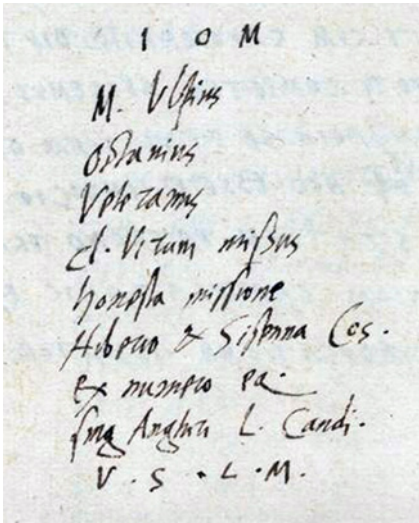 I O M
M. Ulpius
Octavius
Veteranus
d. Vitum missus
honesta missione
Hiberio & Sisenna Cos.
ex numero eq.
sing Augusti L. Candi.
V . S . L . M .